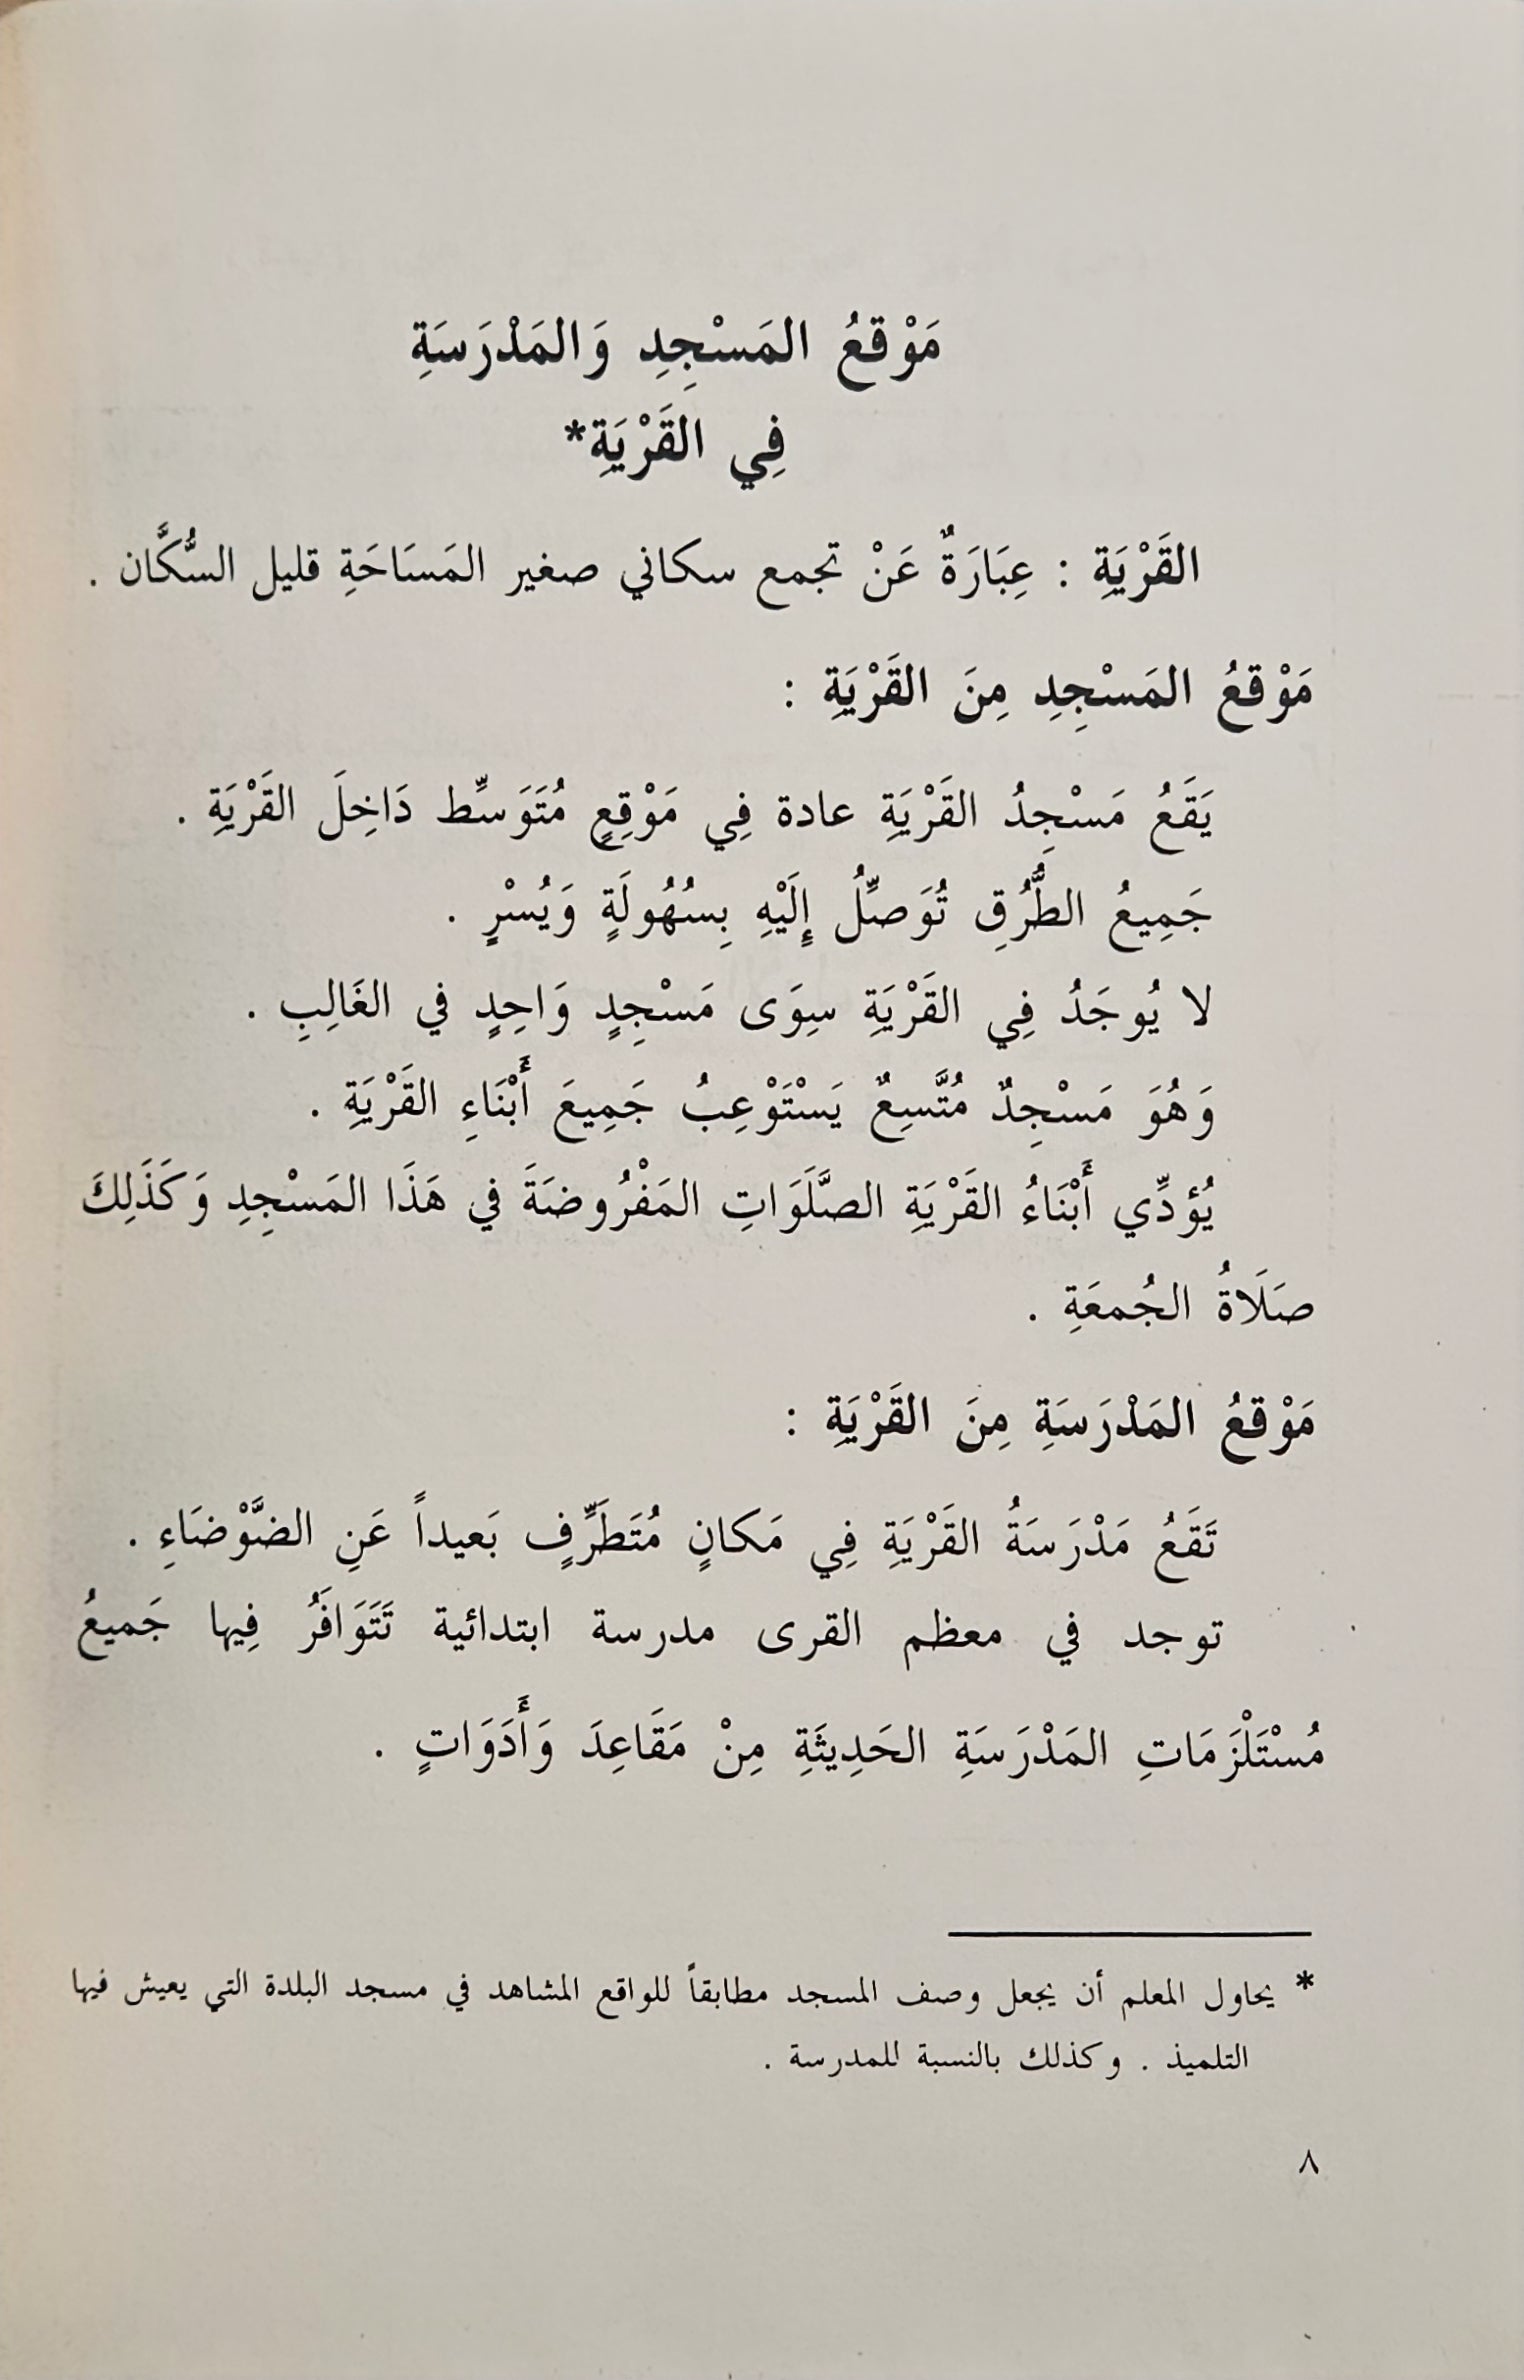 مَوْقعُ المَسْجِدِ وَالمَدْرَسَةِ
فِي القَرْيَةِ*
القَرْيَةِ : عِبَارَةٌ عَنْ تجمع سكاني صغير المَسَاحَةِ قليل السُّكَّان .
مَوْقعُ المَسْجِدِ مِنَ القَرْيَةِ :
يَقَعُ مَسْجِدُ القَرْيَةِ عادة فِي مَوْقِعٍ مُتَوَسِّط دَاخِلَ القَرْيَةِ .
جَمِيعُ الطُّرُقِ تُوَصِّلُ إِلَيْهِ بِسُهُولَةٍ وَيُسْرٍ .
لا يُوجَدُ فِي القَرْيَةِ سِوَى مَسْجِدٍ وَاحِدٍ في الغَالِبِ .
وَهُوَ مَسْجِدٌ مُتَّسِعٌ يَسْتَوْعِبُ جَمِيعَ أَبْنَاءِ القَرْيَةِ .
يُؤدِّي أَبْنَاءُ القَرْيَةِ الصَّلَوَاتِ المَفْرُوضَةَ في هَذَا المَسْجِدِ وَكَذَلِكَ
صَلَاةُ الجُمعَةِ .
مَوْقعُ المَدْرَسَةِ مِنَ القَرْيَةِ :
تَقَعُ مَدْرَسَةُ القَرْيَةِ فِي مَكانٍ مُتَطَرِّفٍ بَعيداً عَنِ الضَّوْضَاءِ .
توجد في معظم القرى مدرسة ابتدائية تَتَوَافَرُ فِيها جَميعُ
مُسْتَلْزَمَاتِ المَدْرَسَةِ الحَدِيثَةِ مِنْ مَقَاعِدَ وَأَدَوَاتٍ .
* يحاول المعلم أن يجعل وصف المسجد مطابقاً للواقع المشاهد في مسجد البلدة التي يعيش فيها
التلميذ . وكذلك بالنسبة للمدرسة .
٨